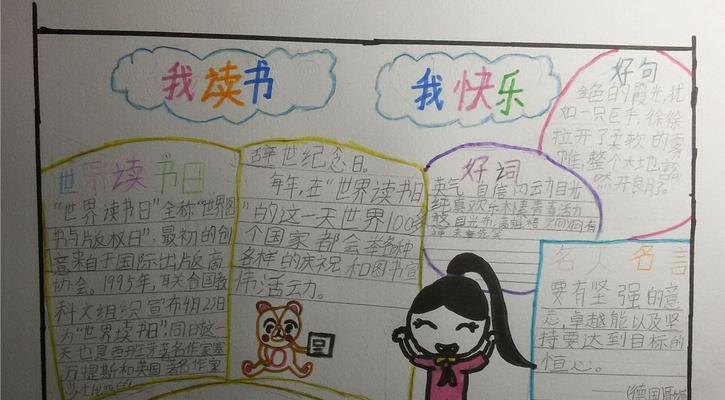 我读书
我快乐
世界读书日
"世界读书日"全称"世界图
书与版权日",最初的创
意来自于国际出版商
协会。1995年,联合国教
科文组织宣布4月23日
为"世界读书日"同日这一
天也是西班牙著名作家塞
万提斯和英国著名作家
辞世纪念日。
每年,在"世界读书日
"的这一天世界100多
个国家都会举各种
各样的庆祝和图书宣
传活动。
好词
英气 自信 闪动目光
好句
金色的霞光,犹
如一只巨手,徐徐
拉开了柔软的雾
帷,整个大地豁
然开良朗了。
名人名言
要有坚强的意
志,卓越能以及坚
持要达到目标的
恒心。
(德国